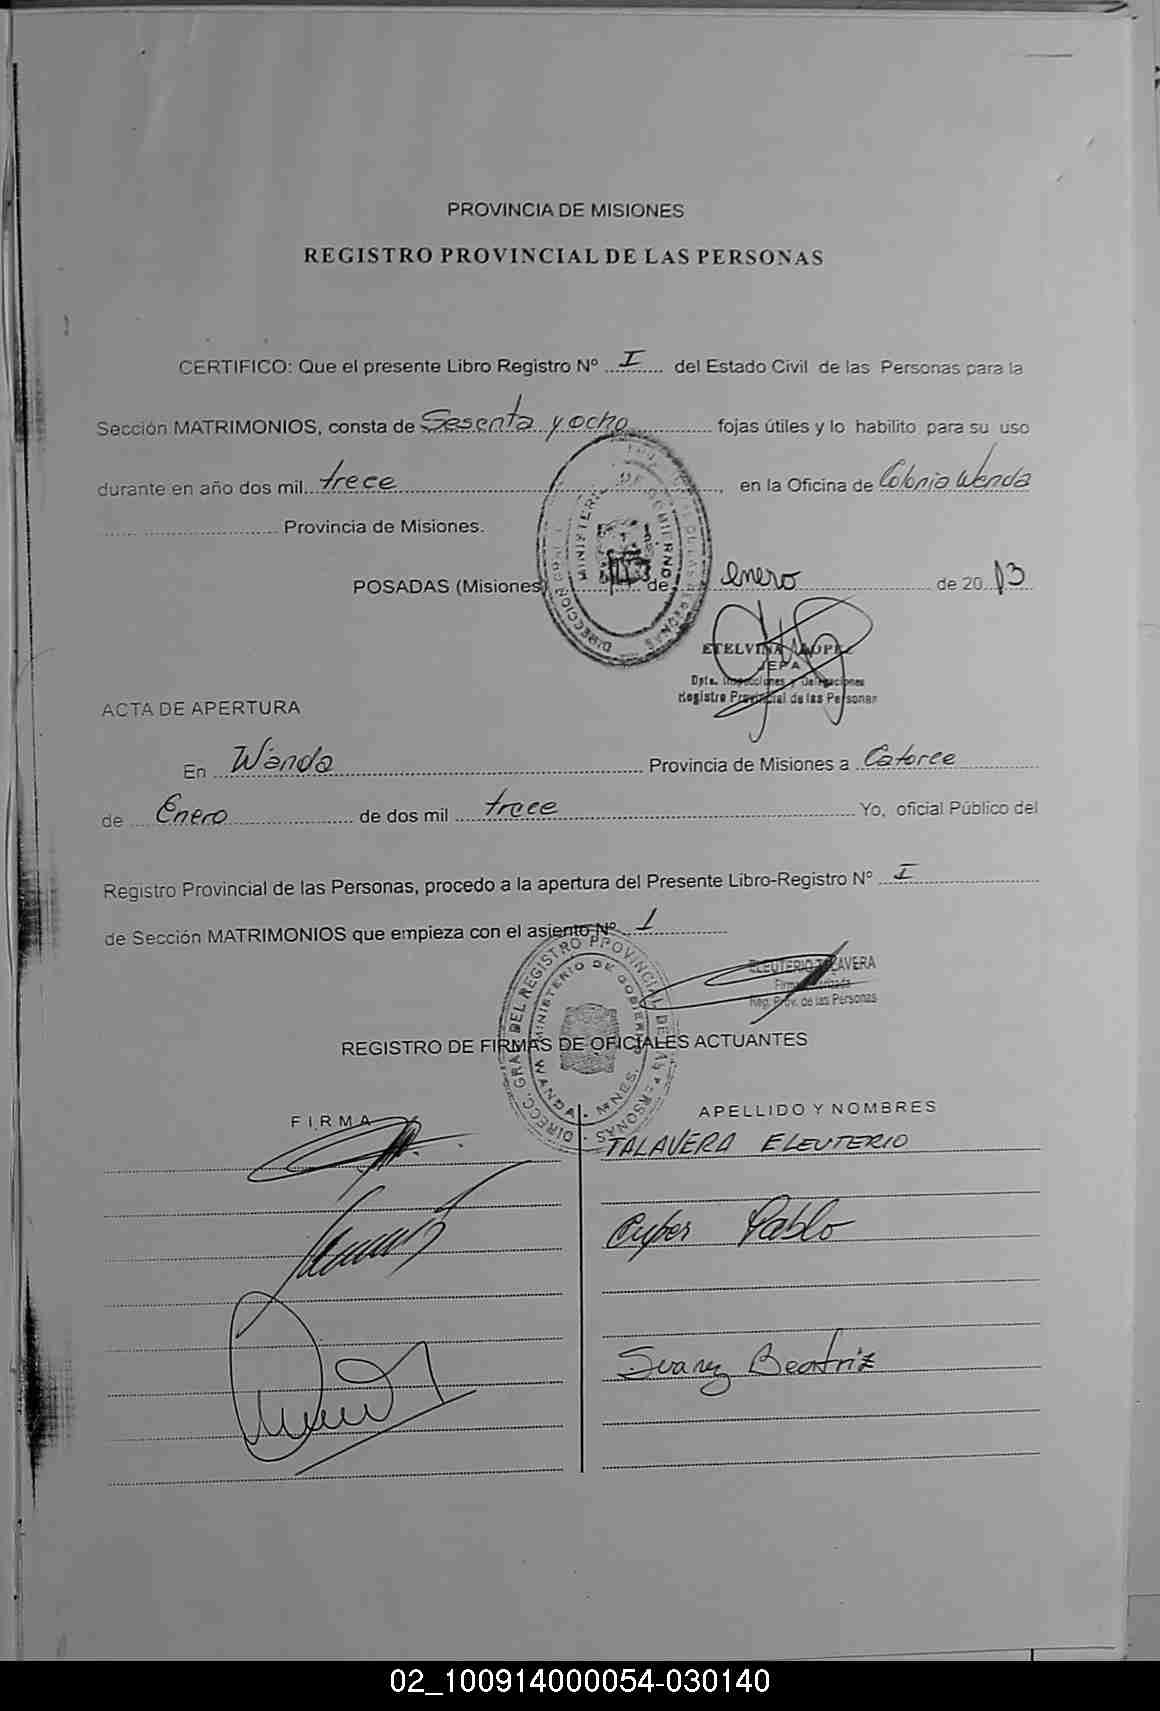 PROVINCIA DE MISIONES
REGISTRO PROVINCIAL DE LAS PERSONAS
CERTIFICO: Que el presente Libro Registro Nº I del Estado Civil de las Personas para la
Sección MATRIMONIOS, consta de Sesenta y ocho fojas útiles y lo habilito para su uso
durante en año dos mil trece, en la Oficina de Colonia Wanda
Provincia de Misiones.
MINISTERIO DE GOBIERNO
DIRECCION GRAL. DE LAS PERSONAS
POSADAS (Misiones) de enero de 2013
ETELVINA LOPEZ
JEFA
Dpto. Inspecciones y Delegaciones
Registro Provincial de las Personas
ACTA DE APERTURA
En Wanda Provincia de Misiones a Catorce
de Enero de dos mil trece Yo, oficial Público del
Registro Provincial de las Personas, procedo a la apertura del Presente Libro-Registro Nº I
de Sección MATRIMONIOS que empieza con el asiento Nº 1
ELEUTERIO TALAVERA
Firma Autorizada
Reg. Prov. de las Personas
DIRECC. GRAL. DEL REGISTRO PROVINCIAL DE LAS PERSONAS
MINISTERIO DE GOBIERNO
WANDA - MNES.
REGISTRO DE FIRMAS DE OFICIALES ACTUANTES
FIRMA APELLIDO Y NOMBRES
TALAVERA ELEUTERIO
Pablo
Suarez Beatriz
02_100914000054-030140